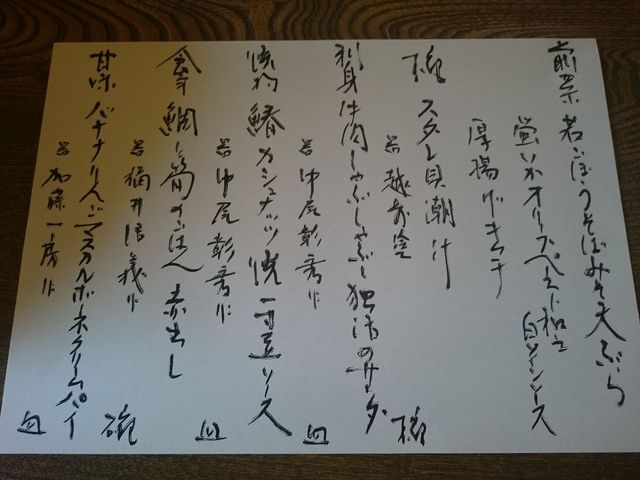 前菜 若ごぼうそばみそ天ぷら
蛍いかオリーブペースト和え 白ワインソース
厚揚げキムチ
椀 スダレ貝潮汁
器 越前塗 椀
刺身 牛肉しゃぶしゃぶ 独活のサラダ
器 中尾彰秀作 皿
焼物 鰆カシュナッツ焼 一寸豆ソース
器 中尾彰秀作 皿
食事 鯛と筍のごはん 赤出し
器 桶井 作 碗
甘味 バナナりんごマスカルポーネクリームパイ
器 加藤一房作 皿